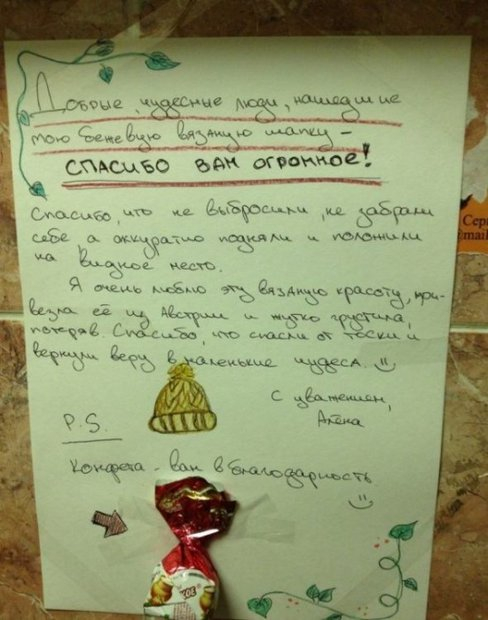 Добрые, чудесные люди, нашедшие
мою бежевую вязаную шапку –
СПАСИБО ВАМ ОГРОМНОЕ!
Спасибо, что не выбросили, не забрали
себе, а аккуратно подняли и положили
на видное место.
Я очень люблю эту вязаную красоту, при-
везла её из Австрии и жутко грустила,
потеряв. Спасибо, что спасли от тоски и
вернули веру в маленькие чудеса.
С уважением,
Алёна
P.S.
Конфета – вам в благодарность
Сер
mail
КОЕ